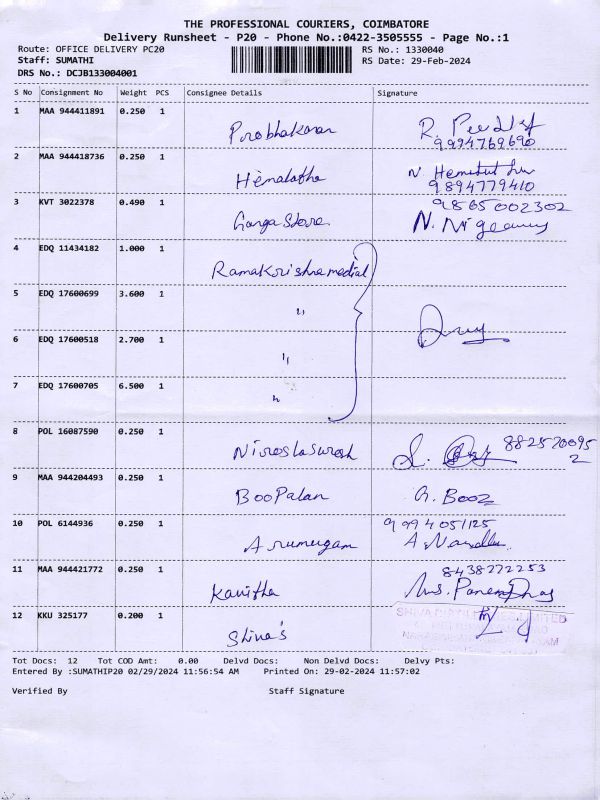 THE PROFESSIONAL COURIERS, COIMBATORE
Delivery Runsheet - P20 - Phone No.:0422-3505555 - Page No.:1
Route: OFFICE DELIVERY PC20 RS No.: 1330040
Staff: SUMATHI RS Date: 29-Feb-2024
DRS No.: DCJB133004001
S No Consignment No Weight PCS Consignee Details Signature
1 MAA 944411891 0.250 1
Prabhakaran R.
9994769690
2 MAA 944418736 0.250 1
Hemalatha N.
9894779410
3 KVT 3022378 0.490 1 9865002302
Ganga Store N.
4 EDQ 11434182 1.000 1
Ramakrishna medial
5 EDQ 17600699 3.600 1
"
6 EDQ 17600518 2.700 1
"
7 EDQ 17600705 6.500 1
"
8 POL 16087590 0.250 1 882570095
2
9 MAA 944204493 0.250 1
BooPalan G. Booz
10 POL 6144936 0.250 1 9994051125
Arumugam A
11 MAA 944421772 0.250 1 8438272253
Kavitha
12 KKU 325177 0.200 1
Shiva's
Tot Docs: 12 Tot COD Amt: 0.00 Delvd Docs: Non Delvd Docs: Delvy Pts:
Entered By :SUMATHIP20 02/29/2024 11:56:54 AM Printed On: 29-02-2024 11:57:02
Verified By Staff Signature